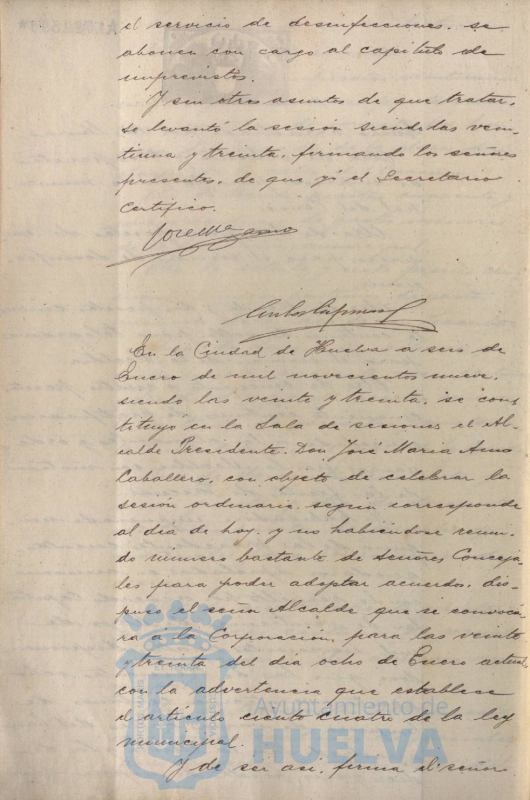 el servicio de desinfecciones, se
abonen con cargo al capítulo de
imprevistos.
Y sin otros asuntos de que tratar,
se levantó la sesión siendo las vein
tiuna y treinta, firmando los señores
presentes, de que yó el Secretario
certifico.
En la Ciudad de Huelva a seis de
Enero de mil novecientos nueve,
siendo las veinte y treinta, se cons
tituyó en la Sala de sesiones el Al-
calde Presidente, Don José Maria Amo
Caballero, con objeto de celebrar la
sesión ordinaria, segun corresponde
al dia de hoy, y no habiéndose reuni-
do número bastante de señores Conceja-
les para poder adoptar acuerdo, dis-
puso el señor Alcalde que se convoca-
ra á la Corporación, para las veinte
y treinta del dia ocho de Enero actual
con la advertencia que establece
el artículo ciento cuatro de la ley
municipal.
Y de ser asi, firma el señor
Ayuntamiento de
HUELVA